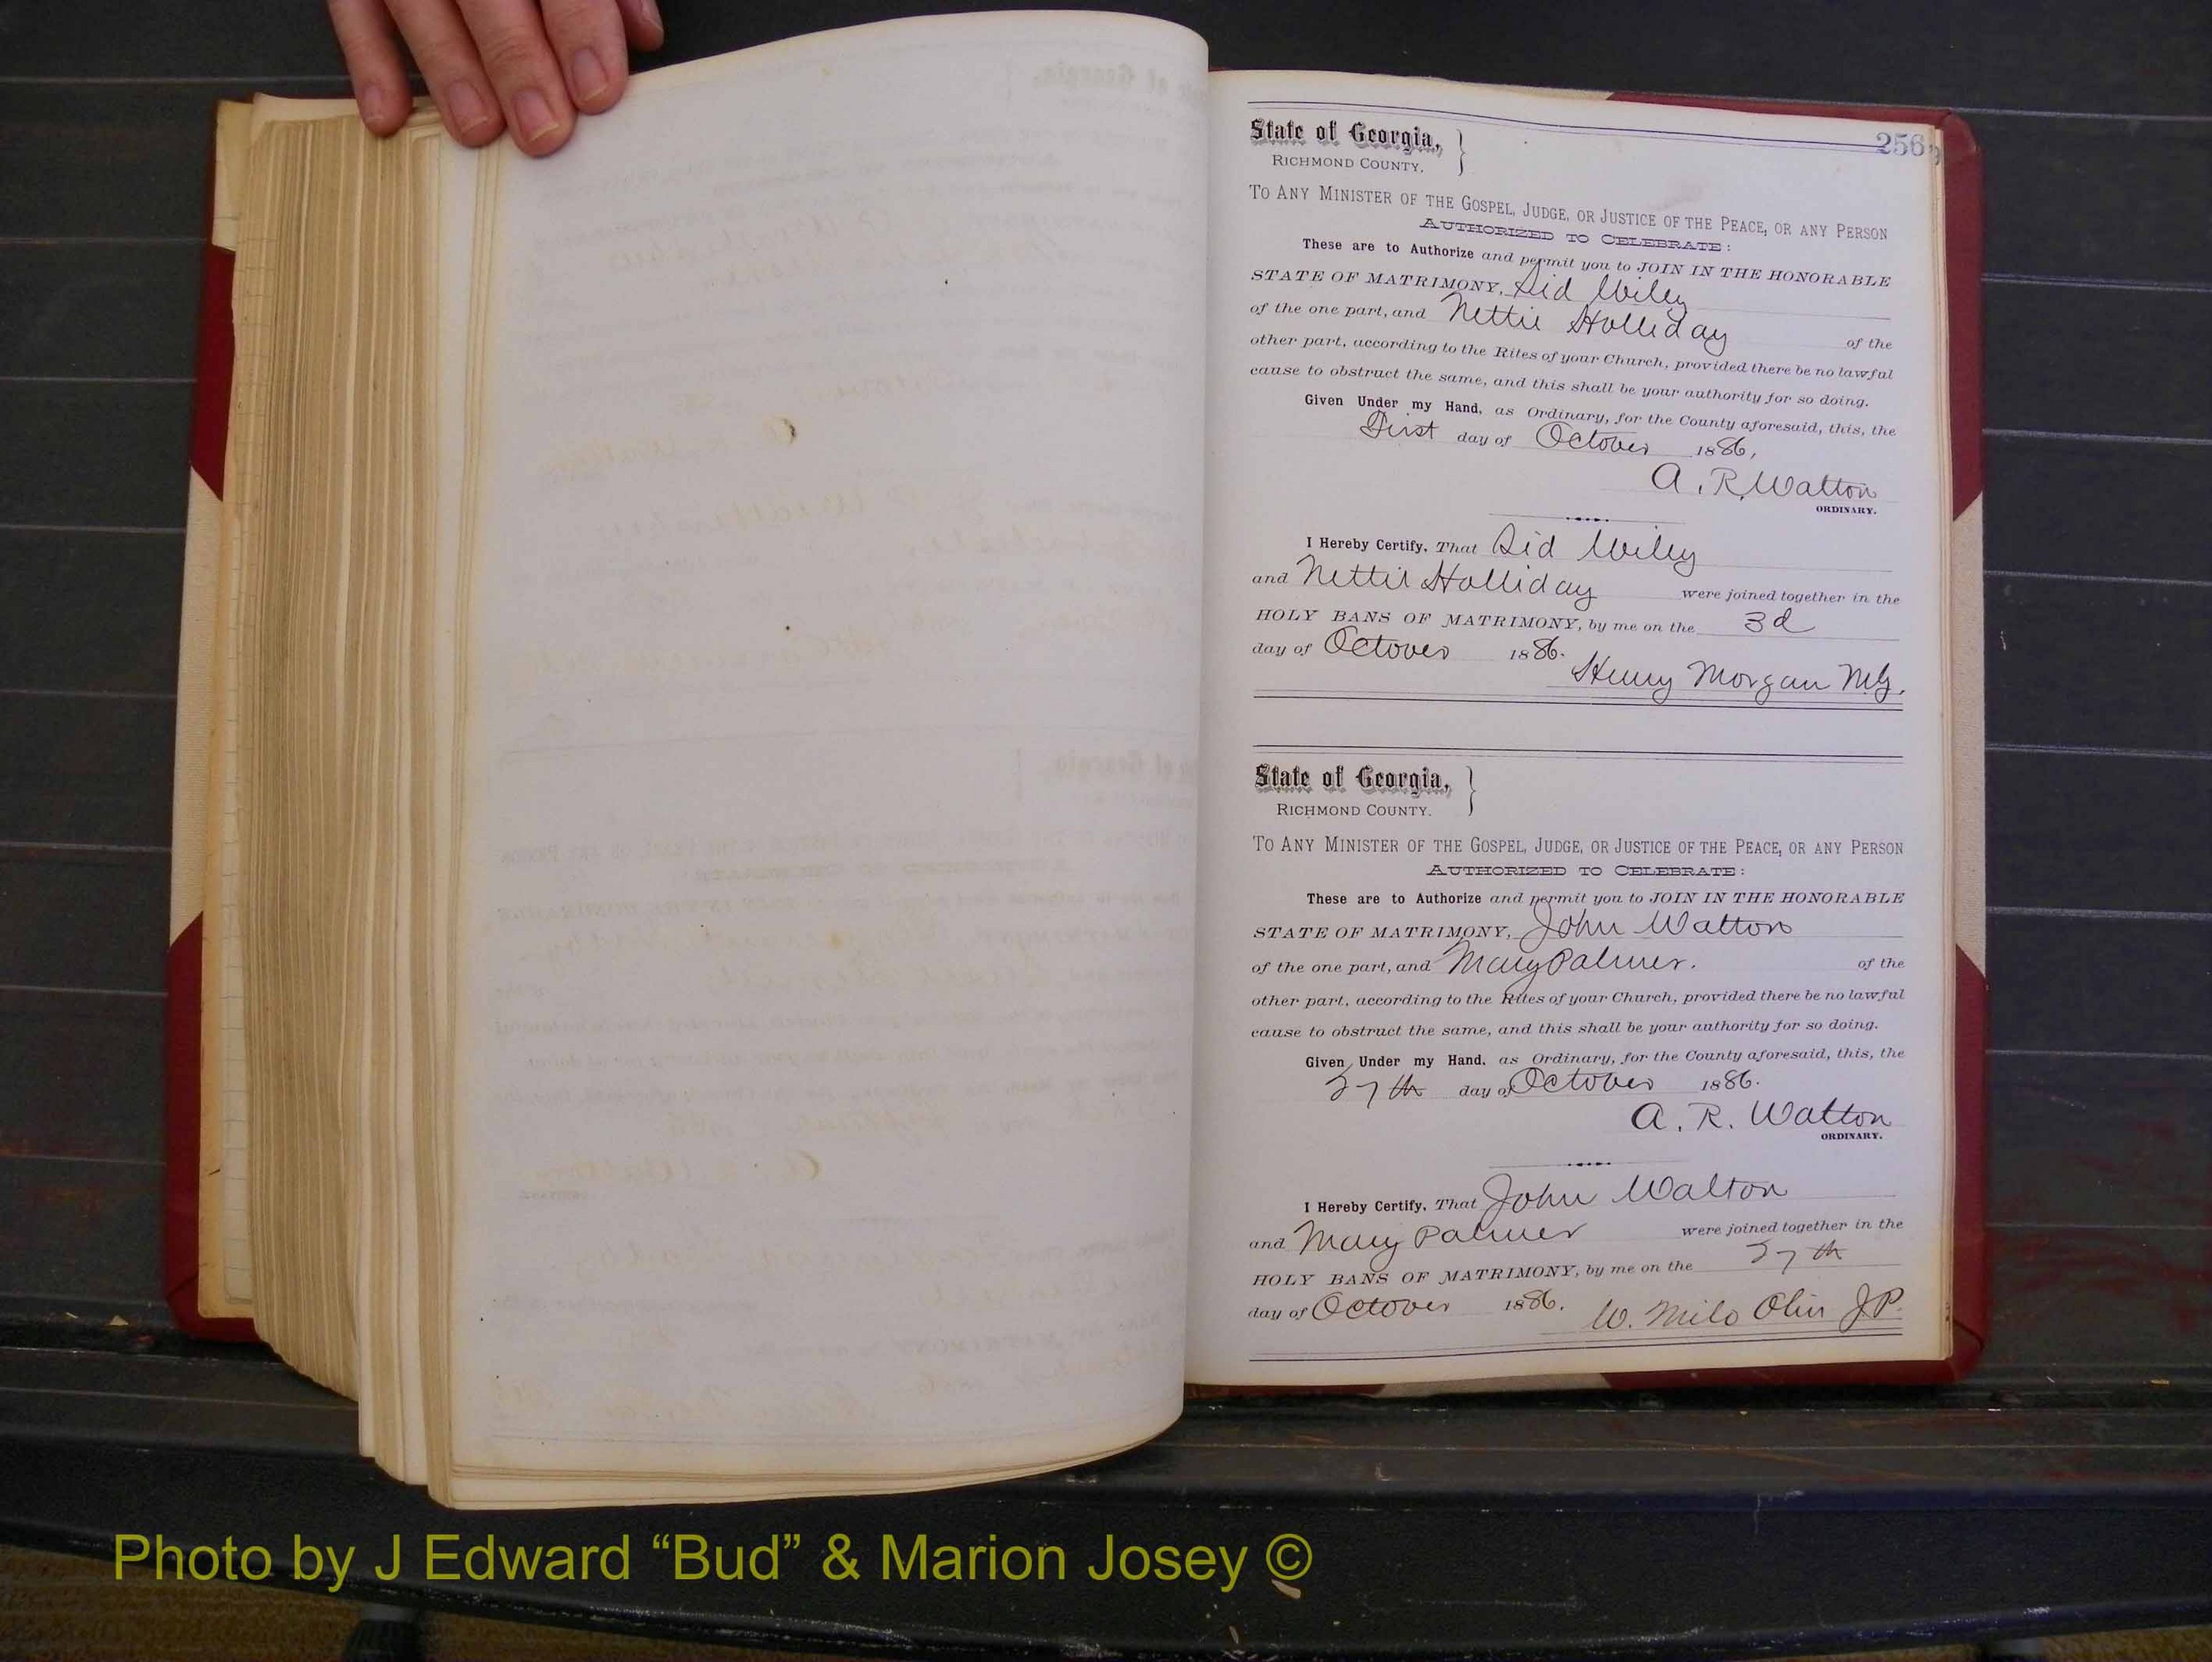 256
State of Georgia,
RICHMOND COUNTY.
TO ANY MINISTER OF THE GOSPEL, JUDGE, OR JUSTICE OF THE PEACE, OR ANY PERSON
AUTHORIZED TO CELEBRATE:
These are to Authorize and permit you to JOIN IN THE HONORABLE
STATE OF MATRIMONY, Sid Wiley
of the one part, and Nettie Holliday of the
other part, according to the Rites of your Church, provided there be no lawful
cause to obstruct the same, and this shall be your authority for so doing.
Given Under my Hand, as Ordinary, for the County aforesaid, this, the
First day of October 1886,
A. R. Walton
ORDINARY.
I Hereby Certify, That Sid Wiley
and Nettie Holliday were joined together in the
HOLY BANS OF MATRIMONY, by me on the 3d
day of October 1886.
Henry Morgan M.G.
State of Georgia,
RICHMOND COUNTY.
TO ANY MINISTER OF THE GOSPEL, JUDGE, OR JUSTICE OF THE PEACE, OR ANY PERSON
AUTHORIZED TO CELEBRATE:
These are to Authorize and permit you to JOIN IN THE HONORABLE
STATE OF MATRIMONY, John Walton
of the one part, and Mary Palmer. of the
other part, according to the Rites of your Church, provided there be no lawful
cause to obstruct the same, and this shall be your authority for so doing.
Given Under my Hand, as Ordinary, for the County aforesaid, this, the
27th day of October 1886.
A. R. Walton
ORDINARY.
I Hereby Certify, That John Walton
and Mary Palmer were joined together in the
HOLY BANS OF MATRIMONY, by me on the 27th
day of October 1886.
W. Milo Olin J.P.
Photo by J Edward “Bud” & Marion Josey ©